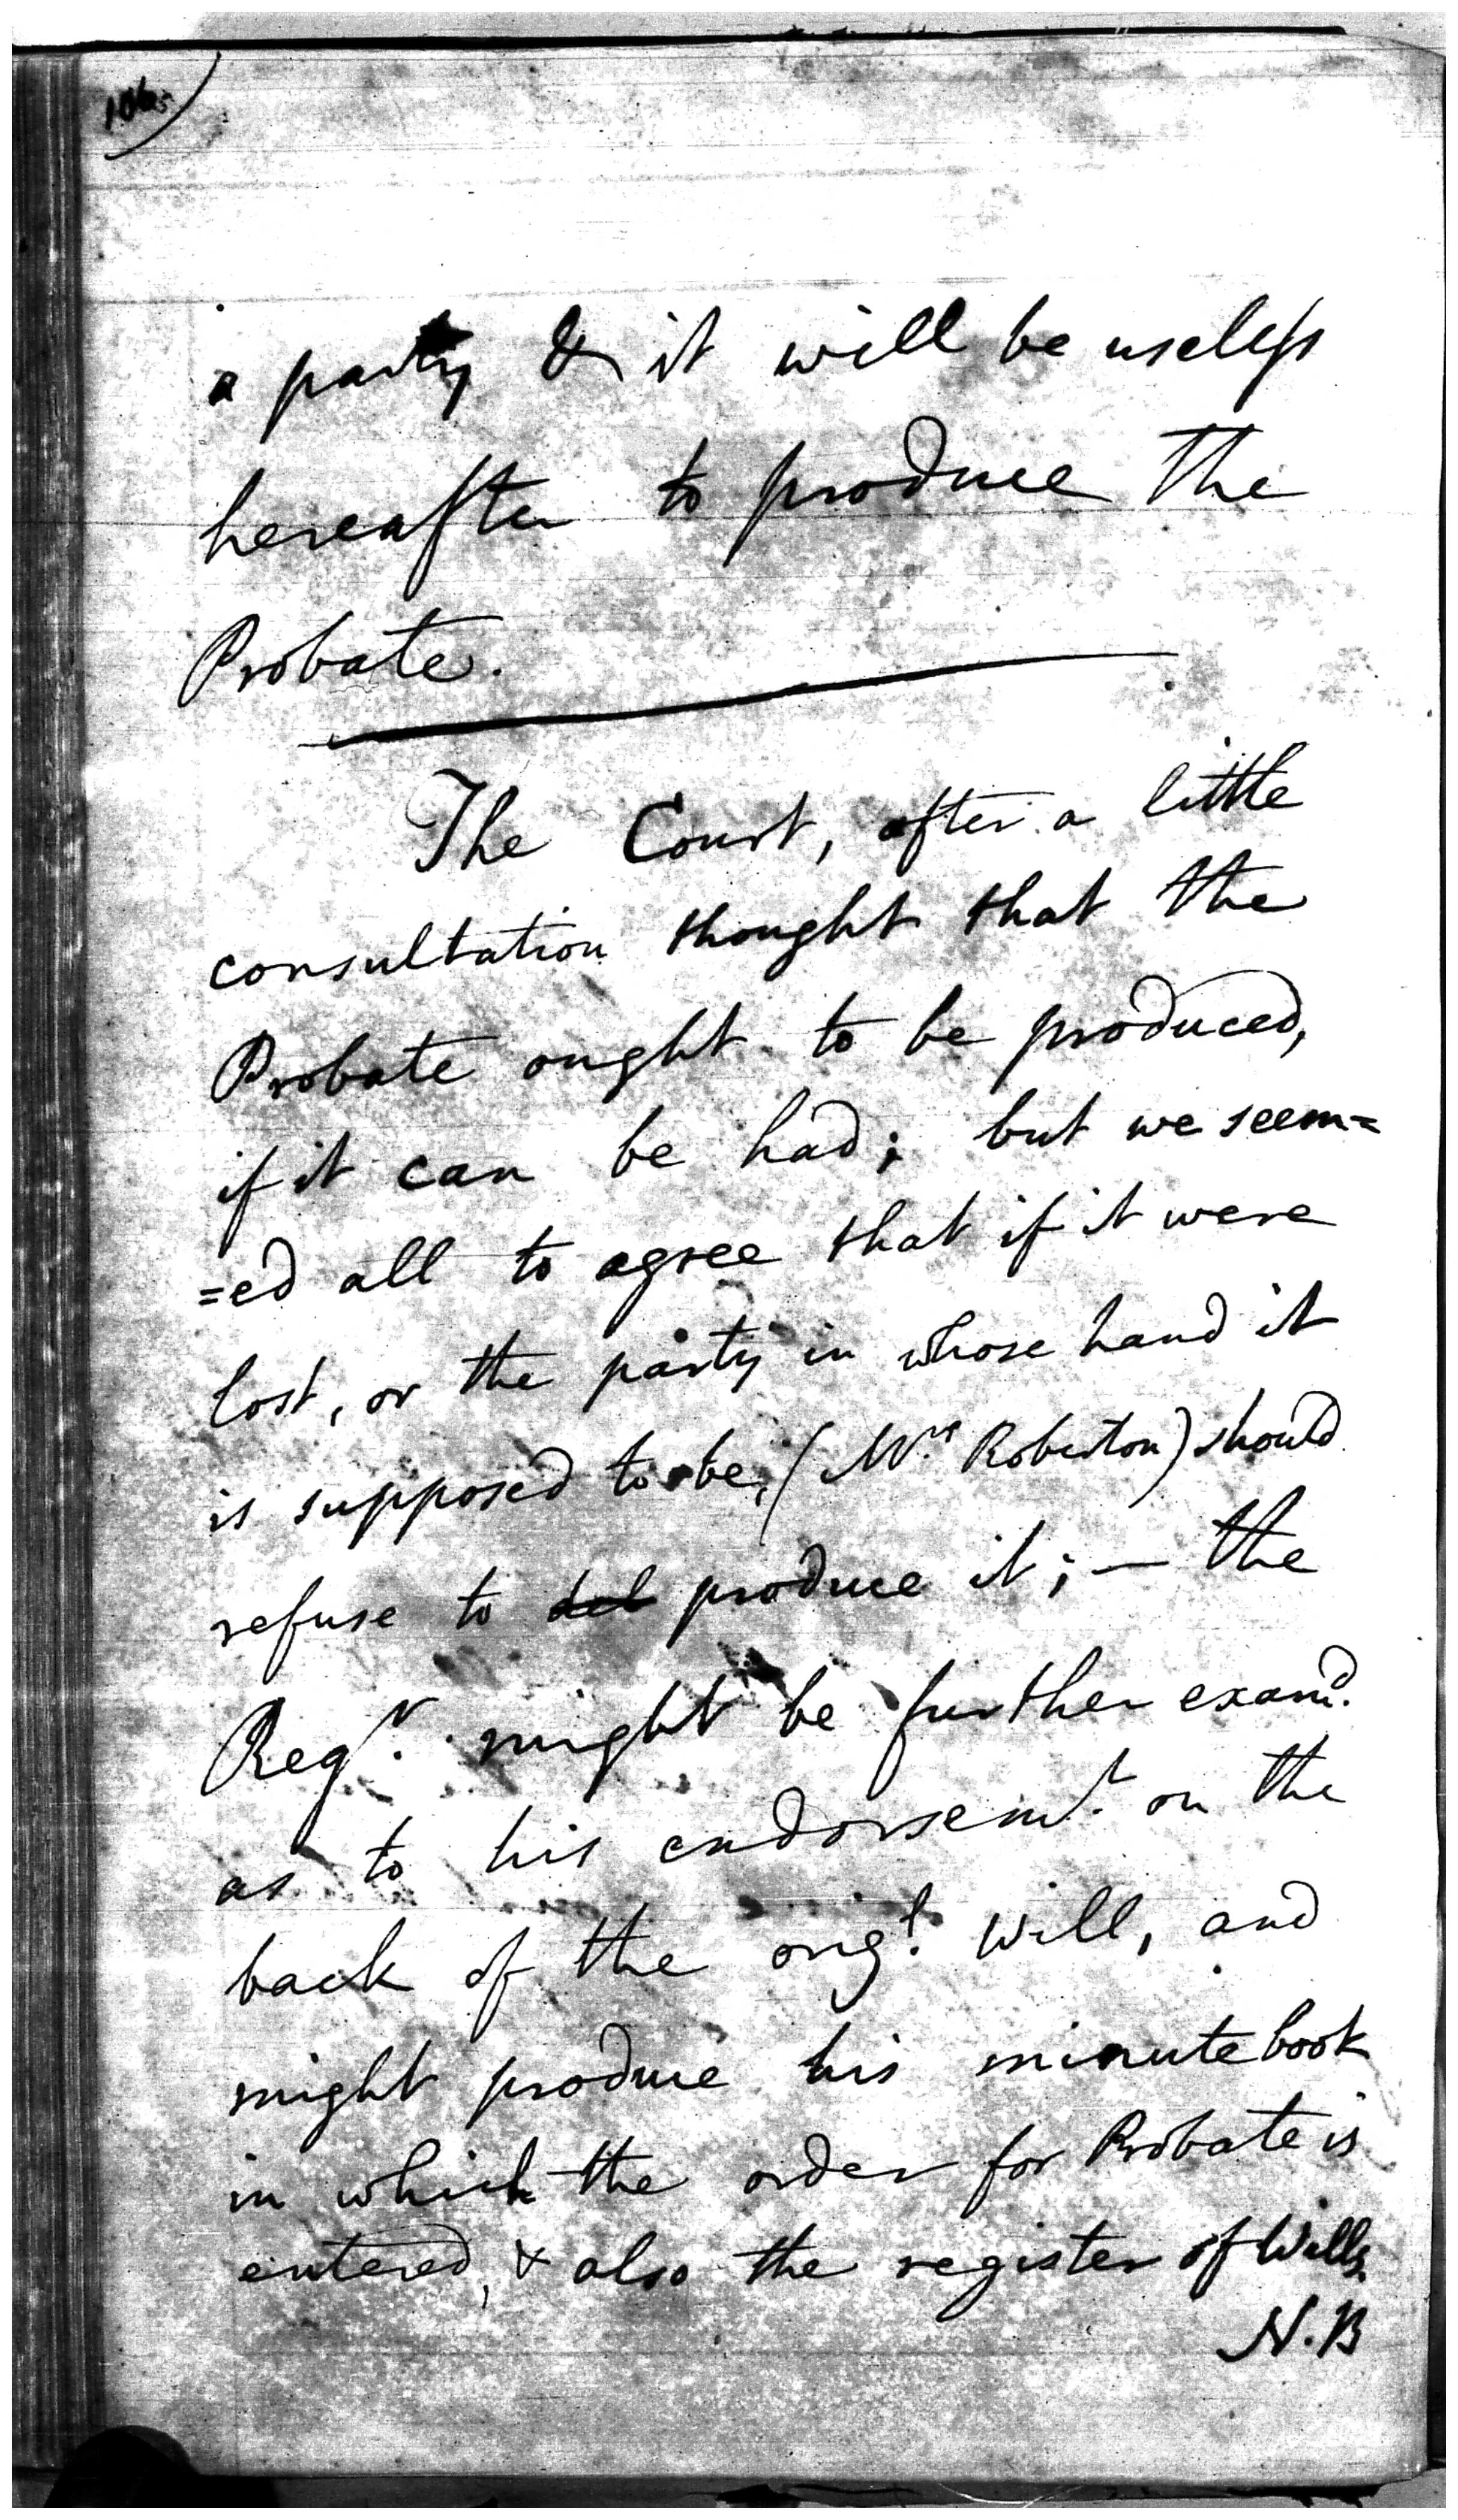 a party & it will be useless
hereafter to produce the
Probate.
The Court, after a little
consultation thought that the
Probate ought to be produced,
if it can be had; but we seem=
=ed all to agree that if it were
lost, or the party in whose hand it
is supposed to be, (Mrs. Roberton) should
refuse to del produce it; — the
Regr. might be further examd.
as to his endorsemt. on the
back of the origl. Will, and
might produce his minute book
in which the order for Probate is
entered, & also the register of Wills.
N.B